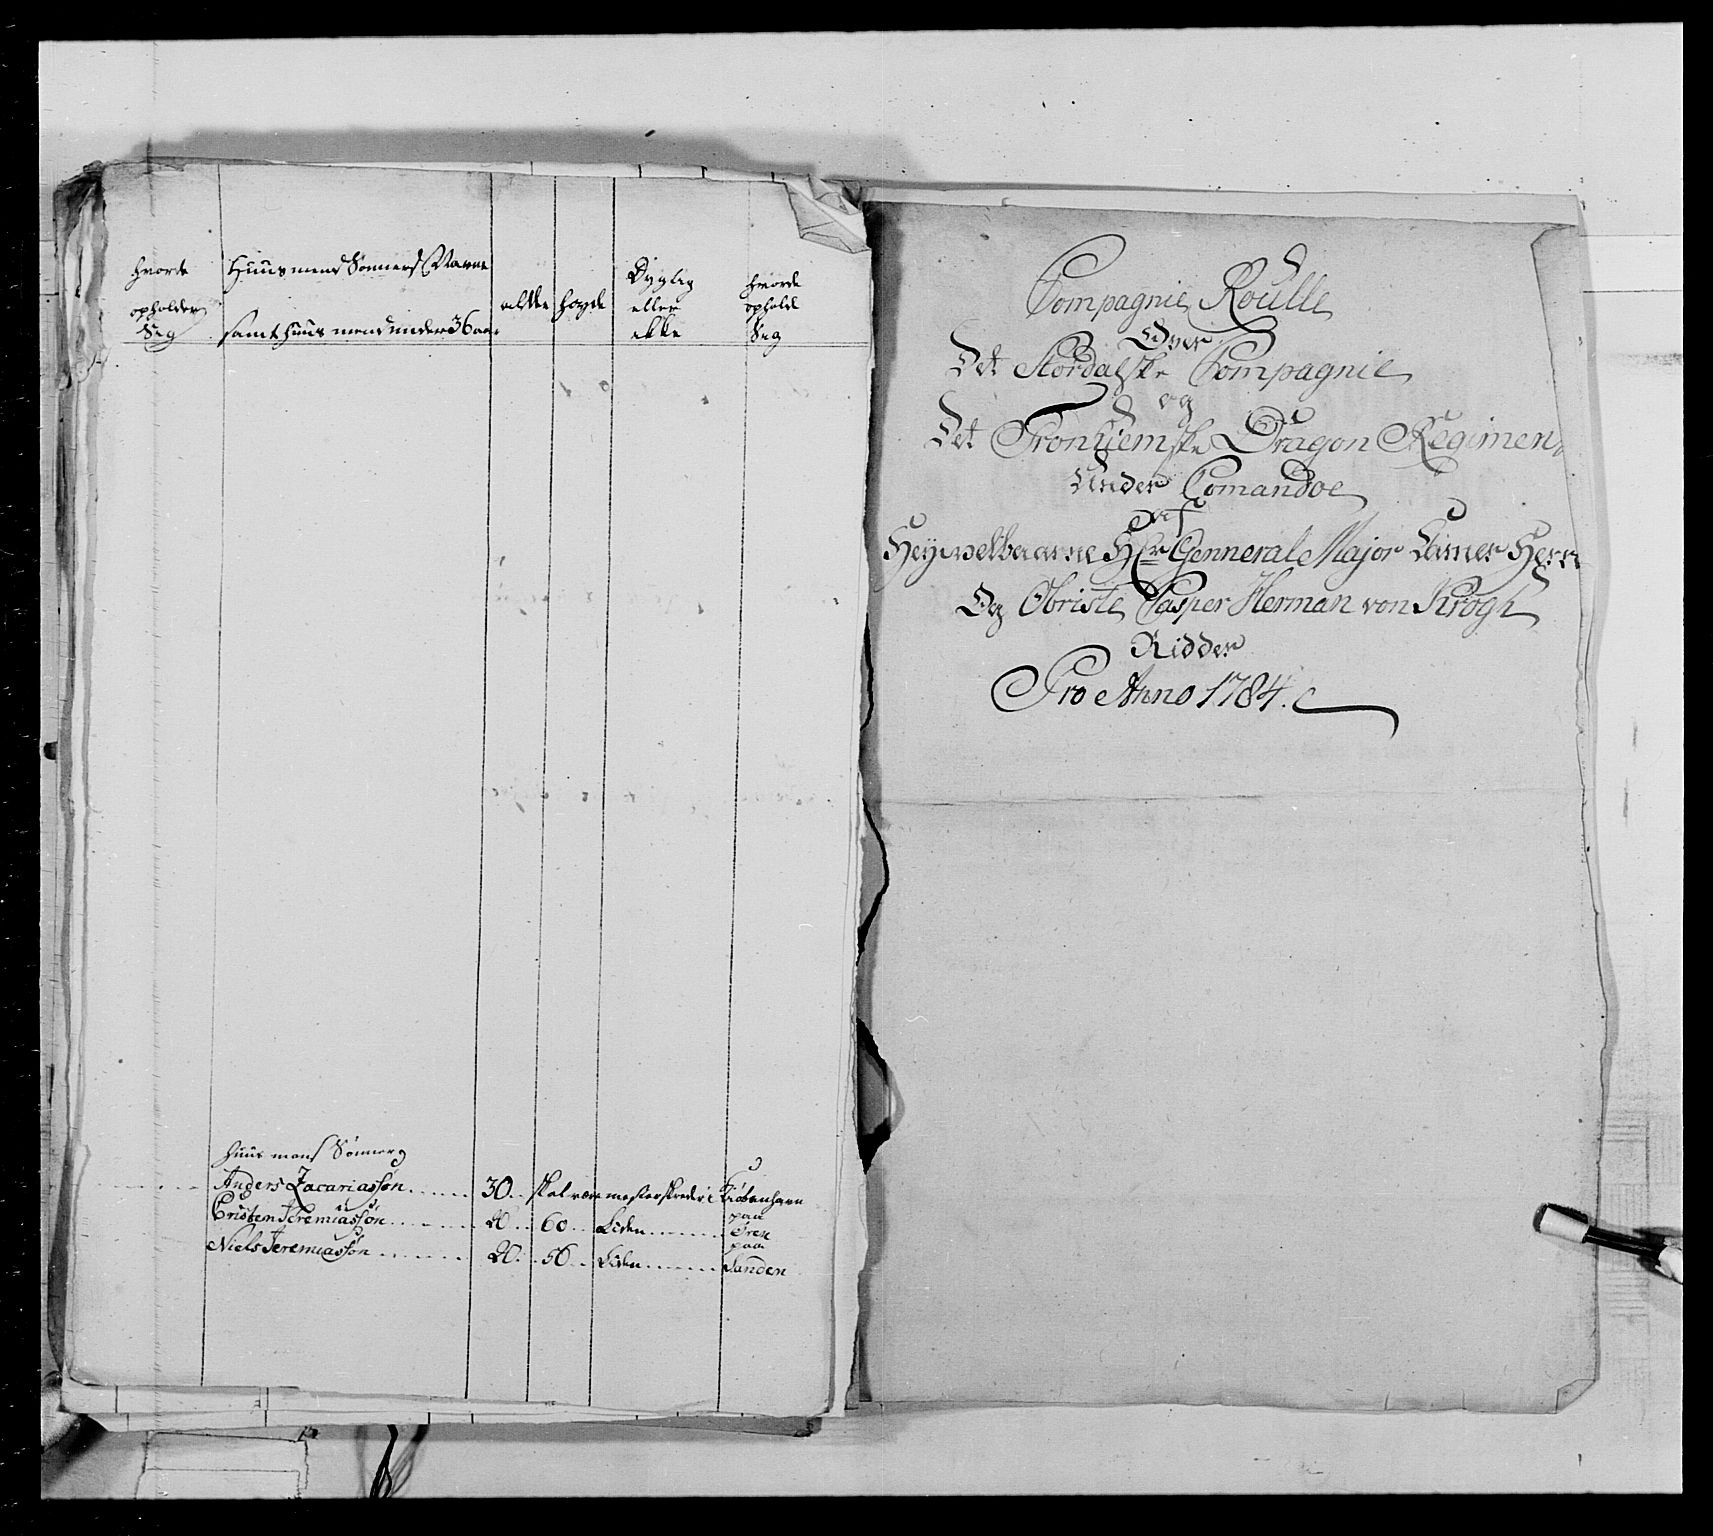 hvorde
opholder
Seg
Huusmends Sønners Navne
samt huusmend under 36 aar
alder
høyde
Dygtig
eller
ikke
hvorde
opholde
Seg
huusmens Sønner
Anders Zacariassøn 30 skal være mester skreder i Kiøbenhavn
Cristen Jeremiassøn 20 60 Liden paa Øren
Niels Jeremiassøn 20 56 Liden paa Sanden
Compagnie Roulle
Over
Det Stordalske Compagnie
og
Det Tronhiemske Dragon Regimen
Under Comandoe
af
Heyvelbaarne Hr Gennerale Major Camer Herr
Og Obriste Casper Herman von Krogh
Ridder
Pro Anno 1784.